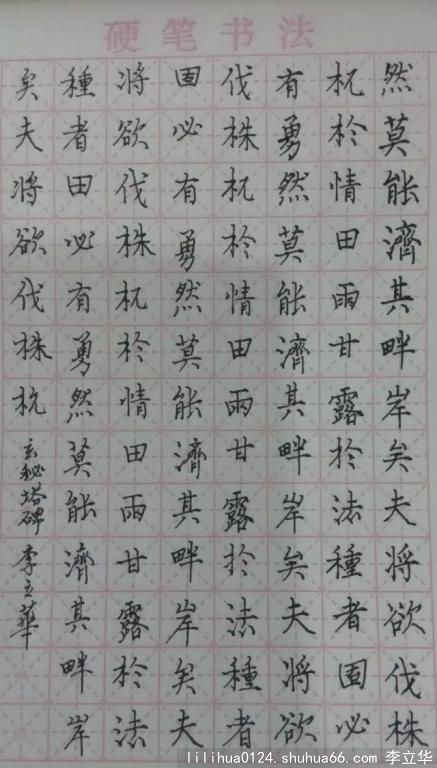 硬笔书法
然莫能濟其畔岸矣夫將欲伐株
杌於情田雨甘露於法種者固必
有勇然莫能濟其畔岸矣夫將欲
伐株杌於情田雨甘露於法種者
固必有勇然莫能濟其畔岸矣夫
將欲伐株杌於情田雨甘露於法
種者田必有勇然莫能濟其畔岸
矣夫將欲伐株杌玄秘塔碑李立華
lilihua0124.shuhua66.com 李立华